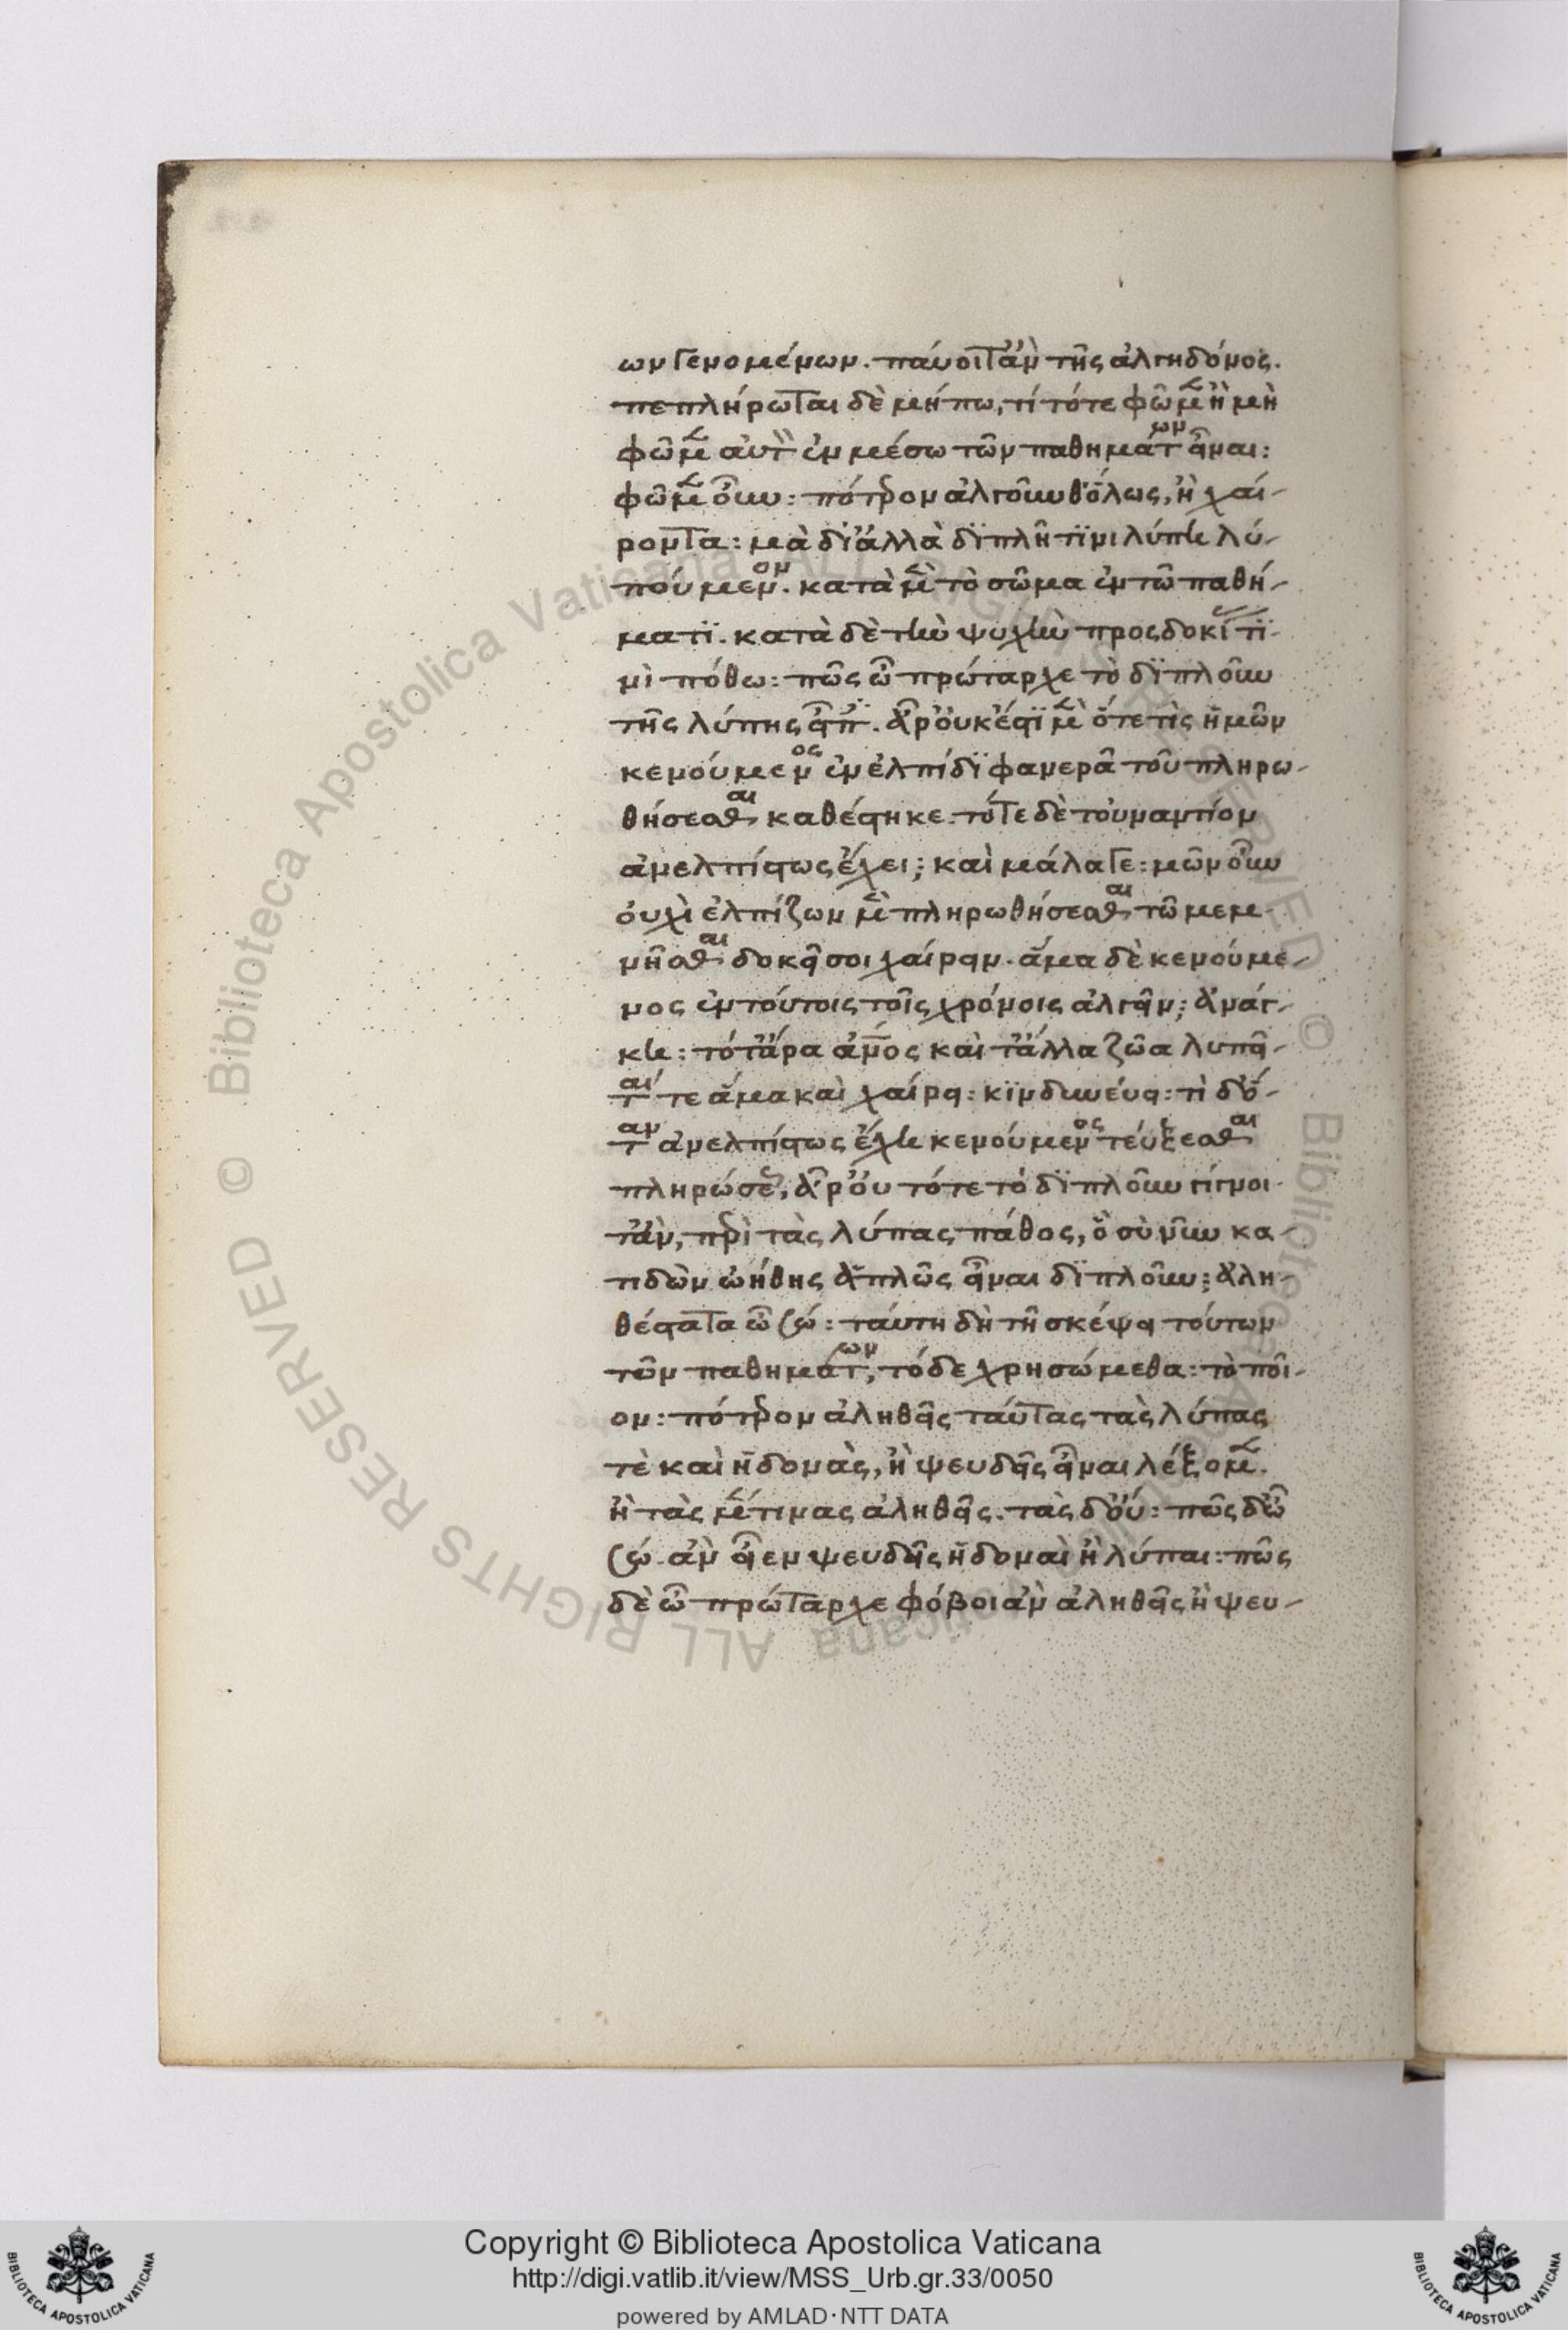 ων γενομένων. παύοιτ' ἂν τῆς ἀλγηδόνος.
πεπλήρωται δὲ μήπω, τί τότε φῶμεν ἢ μὴ
φῶμεν αὐτὸν ἐν μέσω τῶν παθημάτων εἶναι:
φῶμεν οὖν: πότερον ἀλγοῦνθ' ὅλως, ἢ χαί-
ροντα: μὰ δί' ἀλλὰ διπλῆ τινι λύπη λυ-
πούμενον. κατὰ μὲν τὸ σῶμα ἐν τῶ παθή-
ματι. κατὰ δὲ τὴν ψυχὴν προσδοκίας τι-
νὶ πόθω: πῶς ὦ πρώταρχε τὸ διπλοῦν
τῆς λύπης εἶπες. ἆρ' οὐκ ἔστι μὲν ὅτε τὶς ἡμῶν
κενούμενος ἐν ἐλπίδι φανερᾶ τοῦ πληρω-
θήσεσθαι καθέστηκε. τότε δὲ τοὐναντίον
ἀνελπίστως ἔχει; καὶ μάλα γε: μῶν οὖν
οὐχὶ ἐλπίζων μὲν πληρωθήσεσθαι τῶ μεμ-
νῆσθαι δοκεῖ σοι χαίρειν. ἅμα δὲ κενούμε-
νος ἐν τούτοις τοῖς χρόνοις ἀλγεῖν; ἀνάγ-
κη: τότ' ἄρα ἄνος καὶ τἄλλα ζῶα λυπεῖ-
ταί τε ἅμα καὶ χαίρει: κινδυνεύει: τὶ δ' ὅ-
ταν ἀνελπίστως ἔχη κενούμενος τεύξεσθαι
πληρώσεως, ἆρ' οὐ τότε τὸ διπλοῦν γίγνοι-
τ' ἂν, περὶ τὰς λύπας πάθος, ὃ σὺ νῦν κα-
τιδὼν ὠήθης ἁπλῶς εἶναι διπλοῦν; ἀλη-
θέστατα ὦ σώ: ταύτη δὴ τῆ σκέψει τούτων
τῶν παθημάτων, τόδε χρησώμεθα: τὸ ποῖ-
ον: πότερον ἀληθεῖς ταύτας τὰς λύπας
τὲ καὶ ἡδονὰς, ἢ ψευδεῖς εἶναι λέξομεν.
ἢ τὰς μέν τινας ἀληθεῖς. τὰς δ' οὔ: πῶς δ' ὦ
σώ. ἂν εἶεν ψευδεῖς ἡδοναὶ ἢ λύπαι: πῶς
δὲ ὦ πρώταρχε φόβοι ἂν ἀληθεῖς ἢ ψευ-
Copyright © Biblioteca Apostolica Vaticana
http://digi.vatlib.it/view/MSS_Urb.gr.33/0050
powered by AMLAD·NTT DATA
BIBLIOTECA APOSTOLICA VATICANA
BIBLIOTECA APOSTOLICA VATICANA
© Biblioteca Apostolica Vaticana ALL RIGHTS RESERVED © Biblioteca Apostolica Vaticana ALL RIGHTS RESERVED